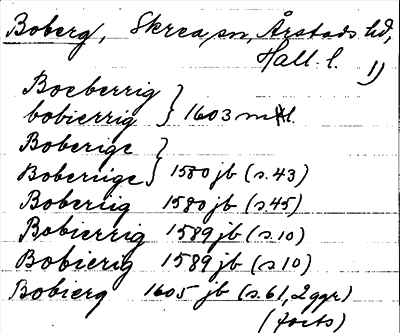 Boberg, Skrea sn, Årstads hd,
Hall. l. 1)
Boeberrig
bobierrig } 1603 mtl.
Boberige
Boberiige } 1580 jb (s.43)
Boberiig 1580 jb (s.45)
Bobierrig 1589 jb (s.10)
Bobierig 1589 jb (s.10)
Bobierg 1605 jb (s.61, 2 ggr)
(forts)